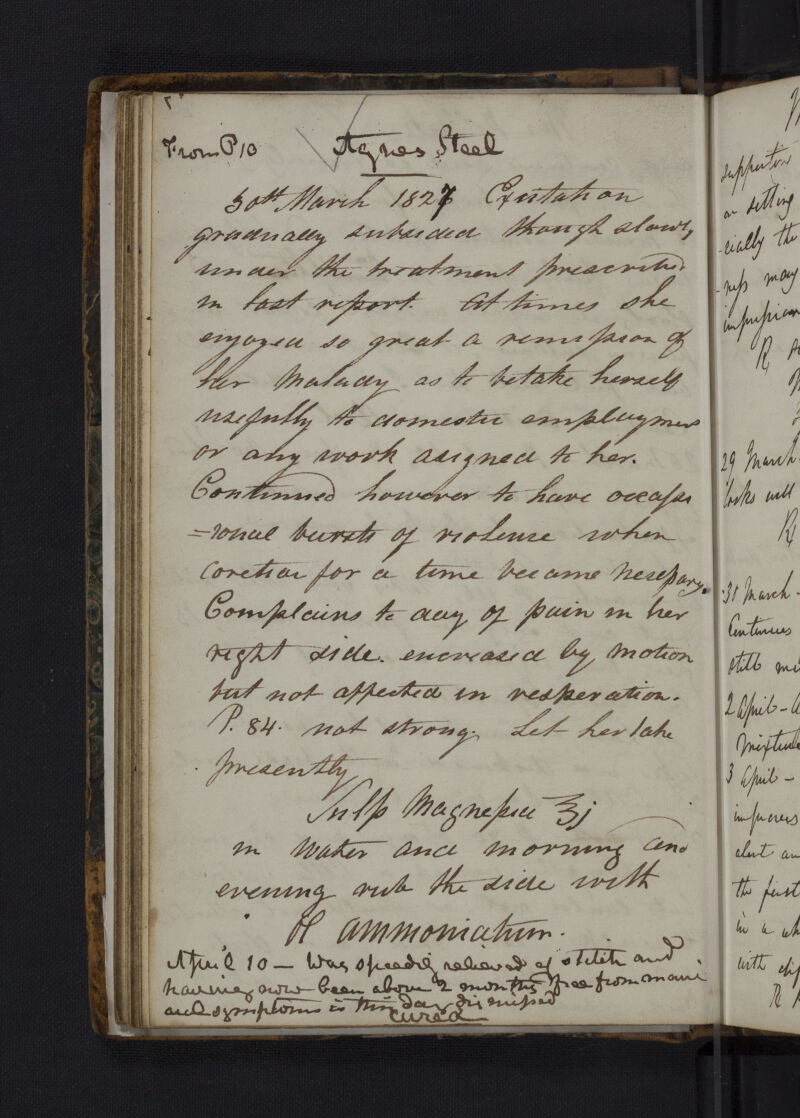 From P 10
Agnes Steel
30th March 1827 Exitation
gradually subsided though slowly
under the treatment prescribed
in last report. At times she
enjoyed so great a remission of
her Malady as to betake herself
usefully to domestic employment
or any work asigned to her.
Continued however to have occass
=ional bursts of violence when
coretion for a time became nesessary.
Complains to day of pain in her
right side. encreased by motion
but not affected in resperation.
P. 84. not strong. Let her take
presently
Sulp Magnesia ℥j
in water and morning and
evening rub the side with
Ol ammoniatum.
April 10 — Was speedily releaved of stitch and
having now been above 2 months free from mani
acal symptoms is this day dismissed
cured
supportin
or sitting
-cially the
-ness may
℞
29 March
looks well
℞
31 March -
Continues
still
2 April -
mixture
3 April -
improves
alert an
the first
in a
with
℞